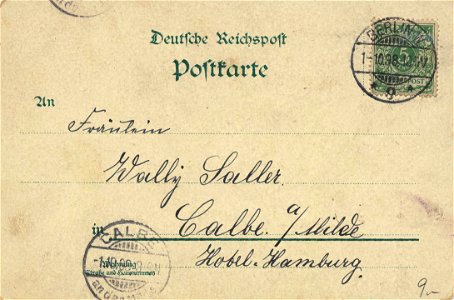 Deutsche Reichspost
Postkarte
BERLIN
1-10.98
9
5
POST
An
Fräulein
Wally Saller.
in Calbe. a/Milde
Hotel-Hamburg.
CALBE
Wohnung
Straße und Hausnummer
9.-